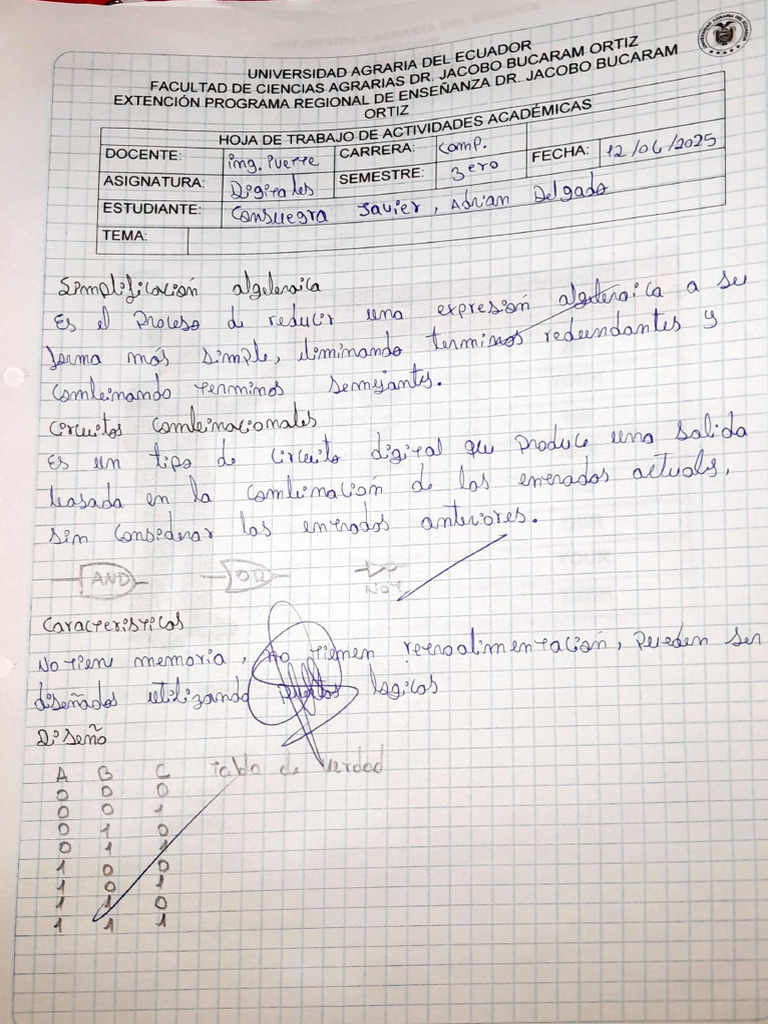 UNIVERSIDAD AGRARIA DEL ECUADOR
FACULTAD DE CIENCIAS AGRARIAS DR. JACOBO BUCARAM ORTIZ
EXTENCIÓN PROGRAMA REGIONAL DE ENSEÑANZA DR. JACOBO BUCARAM
ORTIZ
HOJA DE TRABAJO DE ACTIVIDADES ACADÉMICAS
DOCENTE: ing. Ivette CARRERA: Comp. FECHA: 12/06/2025
ASIGNATURA: Digitales SEMESTRE: 3ero
ESTUDIANTE: Consuegra Javier, Adrian Delgado
TEMA:
Simplificación algebraica
Es el Proceso de reducir una expresión algebraica a su
forma más simple, eliminando terminos redundantes y
combinando terminos semejantes.
Circuitos combinacionales
Es un tipo de circuito digital que produce una salida
basada en la combinación de las entradas actuales,
sin considerar las entradas anteriores.
AND OR NOT
Caracteristicas
No tiene memoria, no tienen retroalimentación, Pueden ser
diseñados utilizando puertas logicas
Diseño
A B C Tabla de verdad
0 0 0
0 0 1
0 1 0
0 1 1
1 0 0
1 0 1
1 1 0
1 1 1